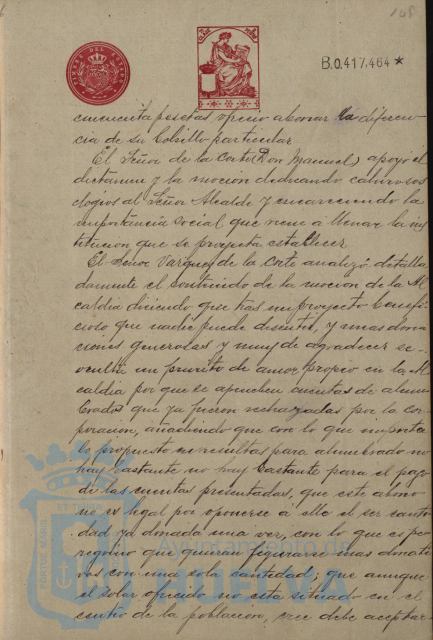 148
B.0.417,464 *
cincuenta pesetas ofrecio abonar la diferen-
cia de su bolsillo particular
El Señor de la Corte (Don Manuel) apoyó el
dictamen y la mocion dedicando calurosos
elogios al Señor Alcalde y encareciendo la
importancia social que viene á llenar la ins
titucion que se proyecta establecer
El Señor Vazquez de la Corte analizó detalla
damente el contenido de la mocion de la Al
caldia diciendo que tras un proyecto benefi
cioso que nadie puede discutir, y unas dona
ciones generosas y muy de agradecer se
oculta un prurito de amor propio en la Al
caldia por que se aprueben cuentas de alum
brados que ya fueron rechazadas por la Cor
poracion, añadiendo que con lo que importa
lo propuesto resultas para alumbrado no
hay bastante no hay bastante para el pago
de las cuentas presentadas, que este abono
no es legal por oponerse á ello el ser canti
dad ya donada una vez, con lo que es pe
regrino que quieran figurarse mas donati
vos con una sola cantidad; que aunque
el solar ofrecido no está situado en el
centro de la poblacion, cree debe aceptar
Ayuntamiento de
ALMERIA